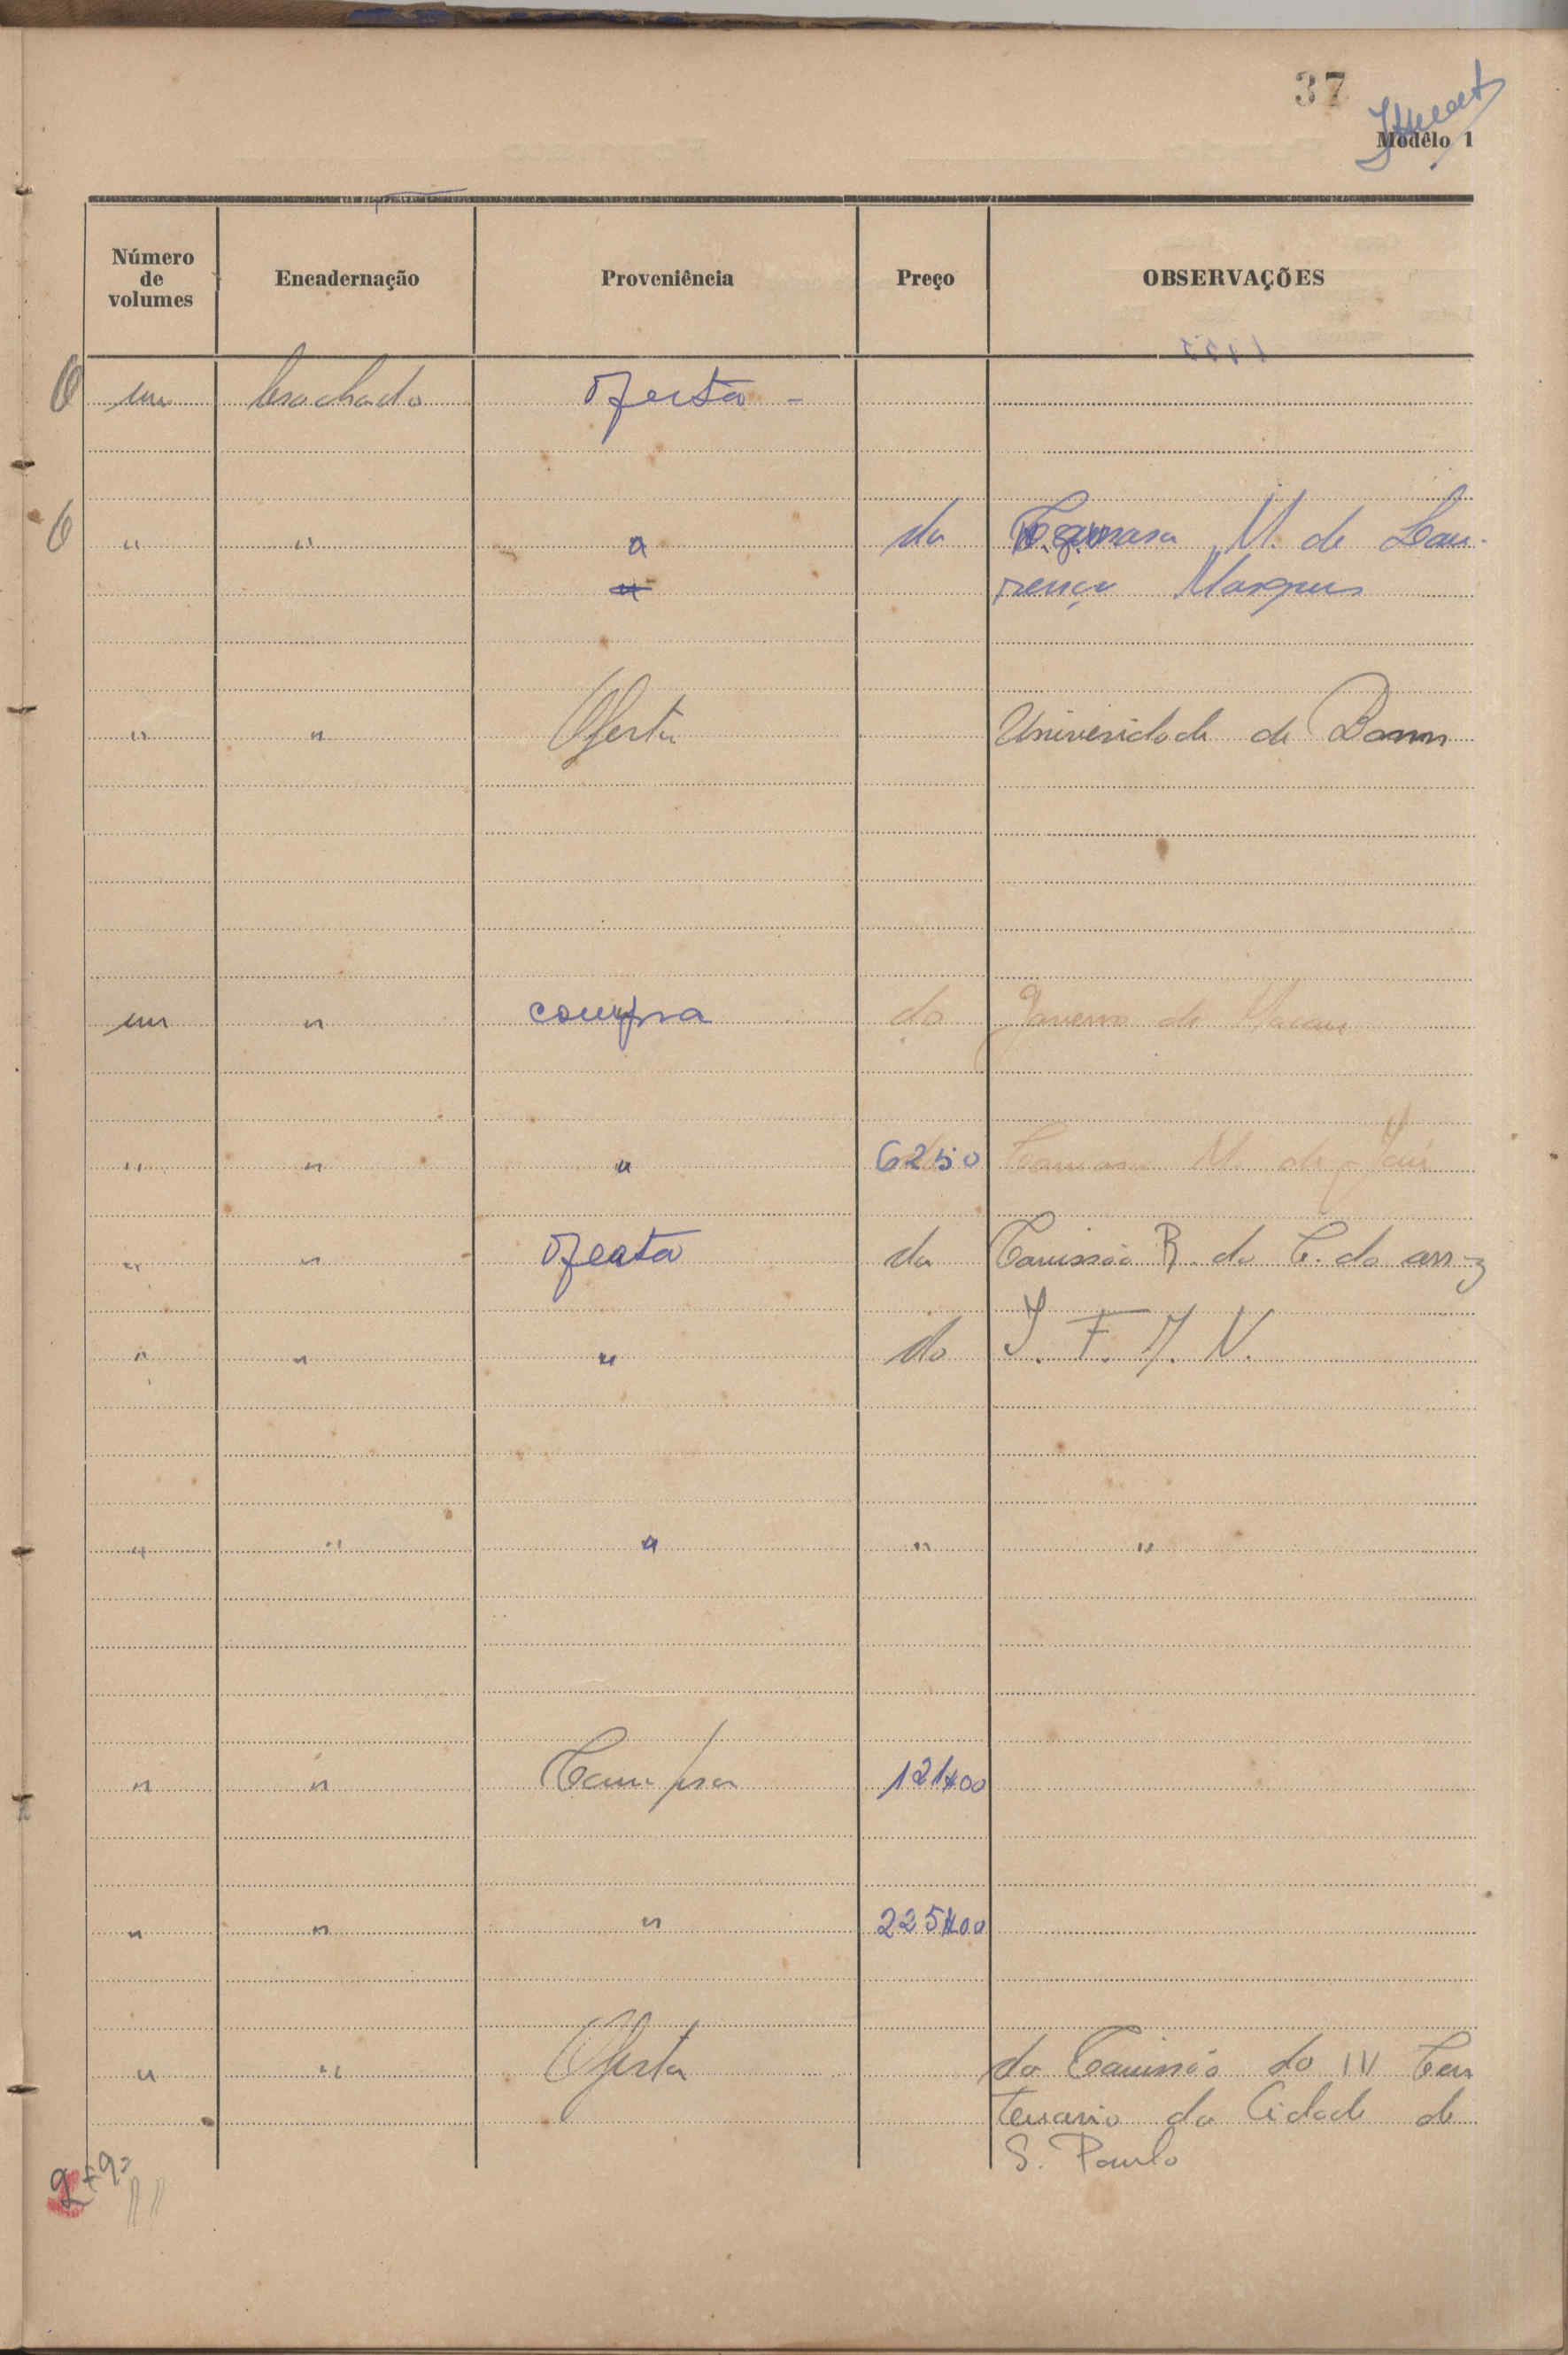 37
Modêlo 1
Número de volumes Encadernação Proveniência Preço OBSERVAÇÕES
um brochado oferta -
" " " da Camara M. de Lou-
renço Marques
" " Oferta Universidade de Bonn
um " compra do Governo de Macau
" " " 6250 Camara M. de
" " oferta da Comissão R. do C. do arroz
" " " do
" " " " "
" " Compra 121$00
" " " 225$00
" " Oferta da Comissão do IV Cen
tenario da Cidade de
S. Paulo